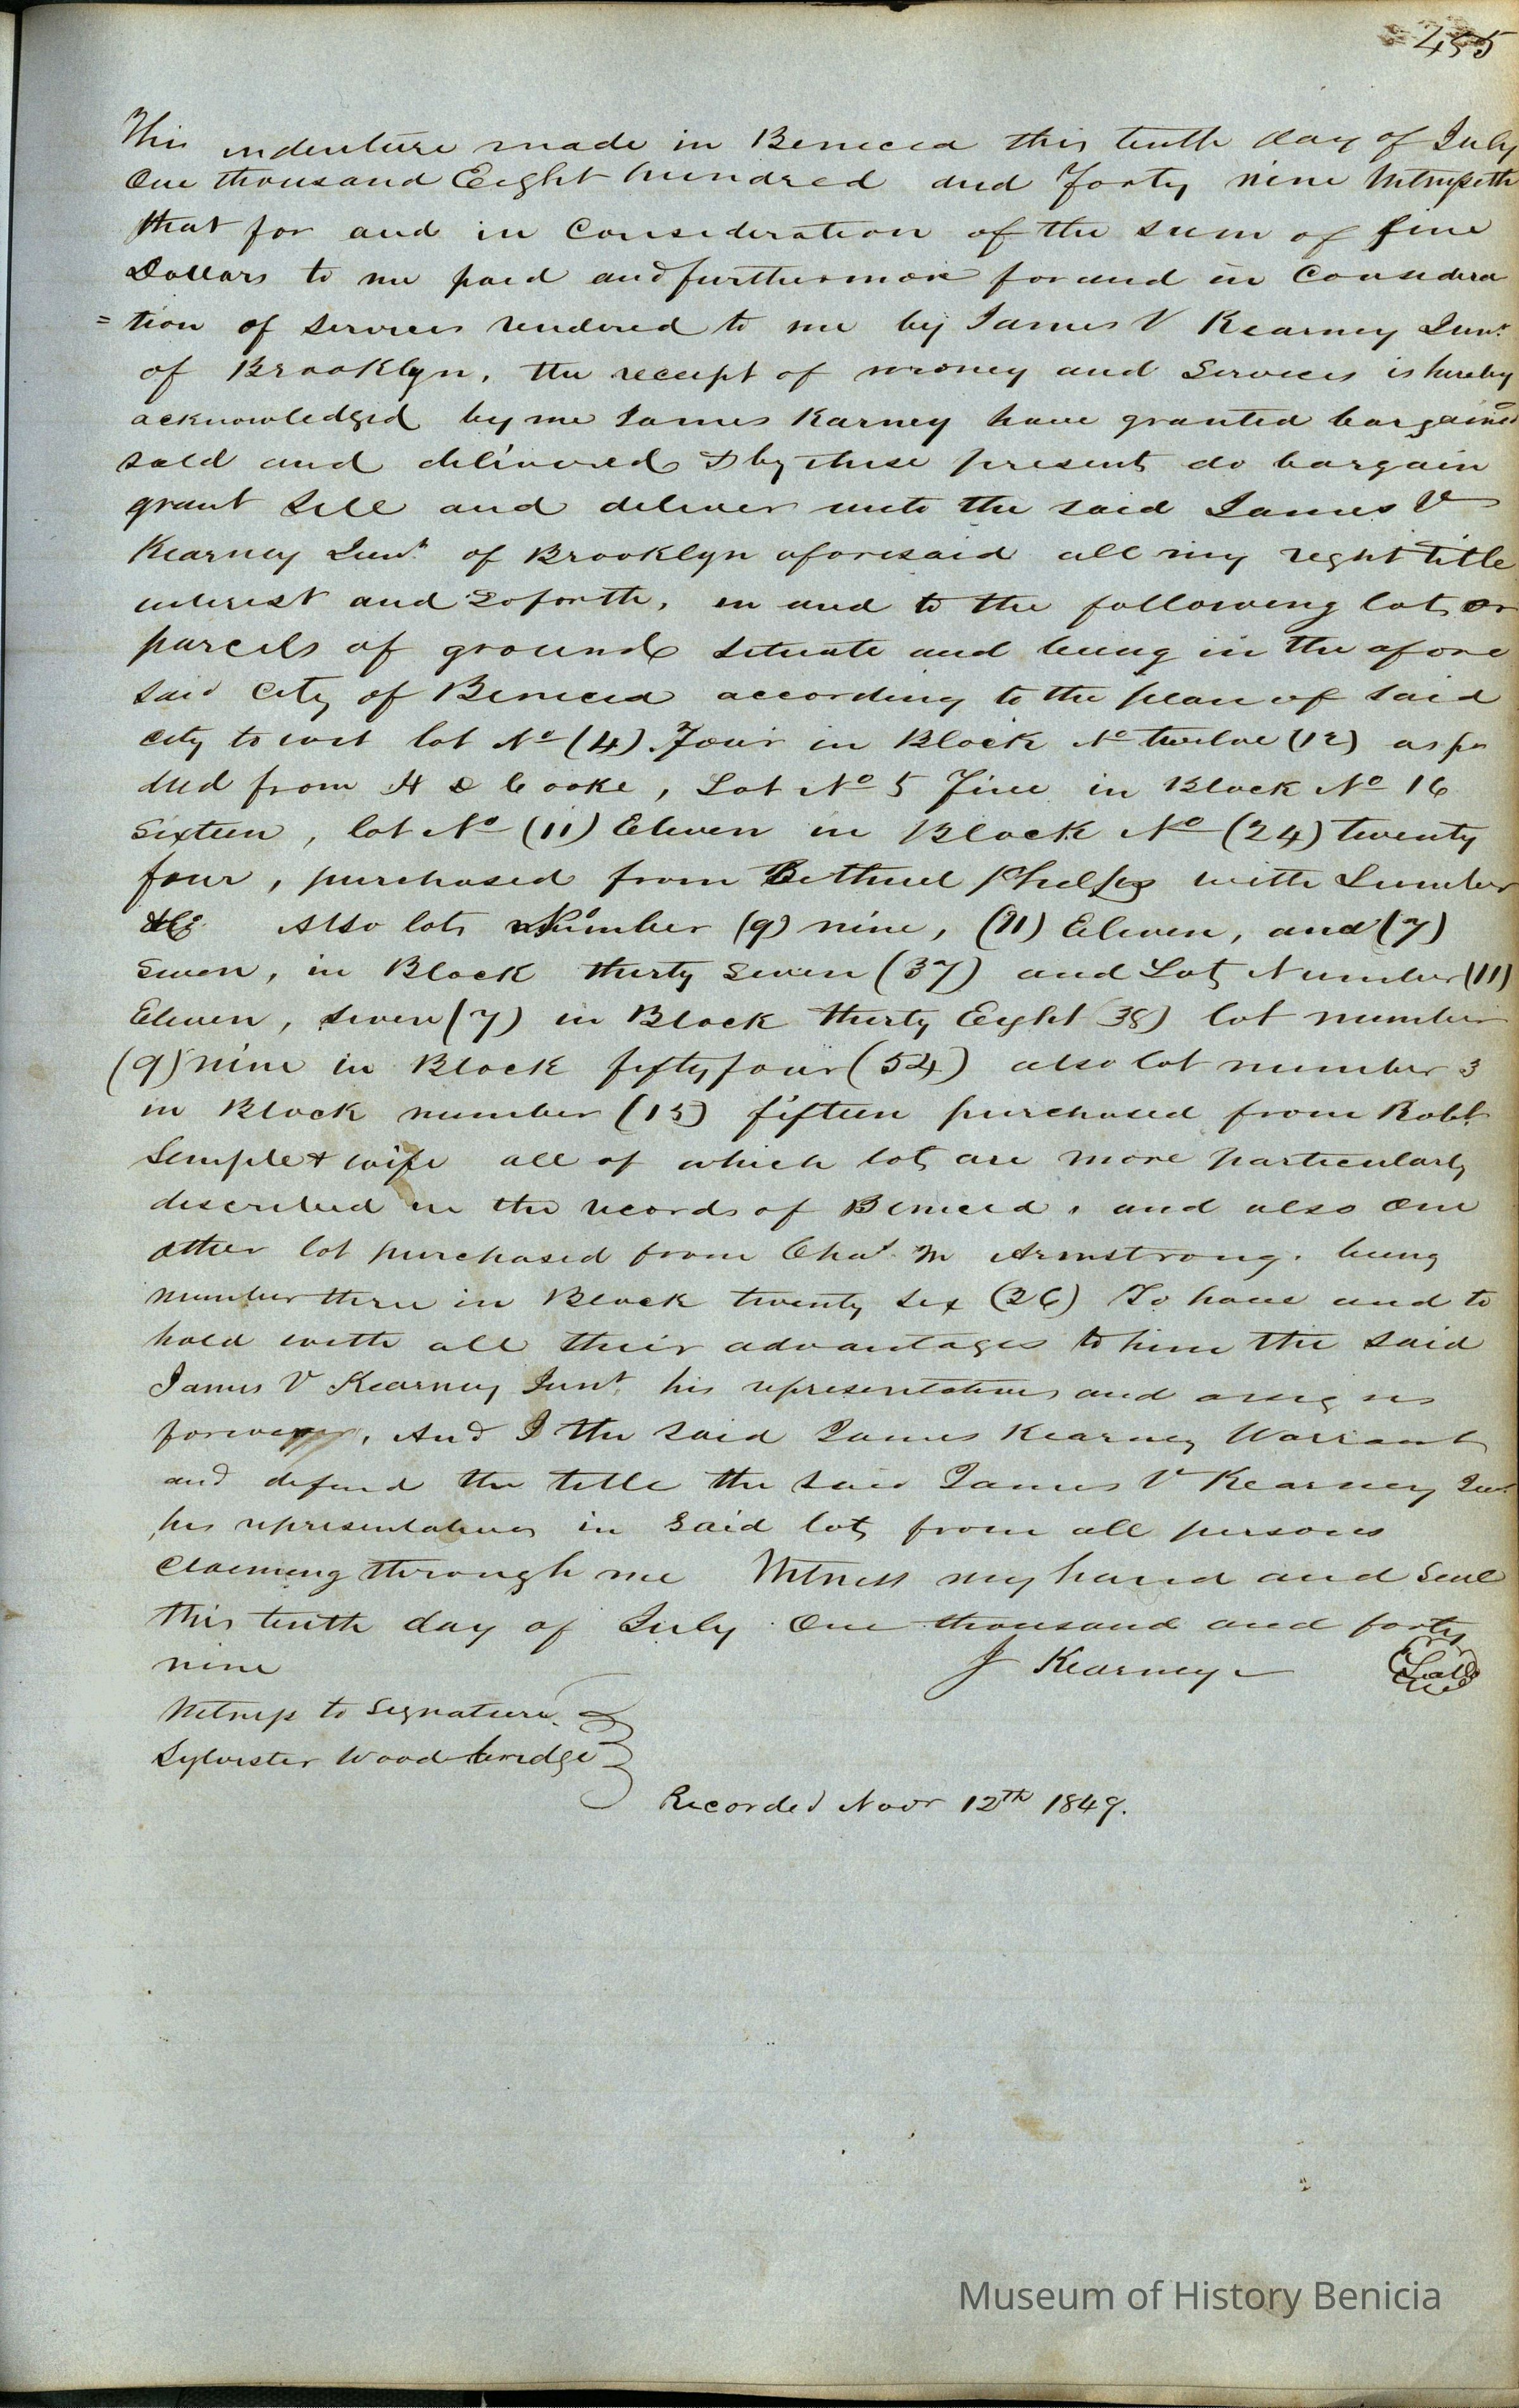 455
This indenture made in Benicia this tenth day of July
One thousand Eight hundred and forty nine Witnesseth
that for and in Consideration of the sum of five
Dollars to me paid and furthermore for and in Considera
=tion of services rendered to me by James V Kearney Junr
of Brooklyn, the receipt of money and Services is hereby
acknowledged by me James Karney have granted bargained
sold and delivered & by these present, do bargain
grant Sell and deliver unto the said James V
Kearney Junr of Brooklyn aforesaid all my right title
interest and so forth, in and to the following lots or
parcels of ground situate and being in the afore
said City of Benicia according to the plan of said
city to wit lot No (4) Four in Block No twelve (12) as pr
deed from H D Cooke, Lot No 5 Five in Block No 16
Sixteen, lot No (11) Eleven in Block No (24) twenty
four, purchased from Bethuel Phelps with Lumber
&c Also lots Number (9) nine, (11) Eleven, and (7)
Seven, in Block thirty seven (37) and Lots Number (11)
Eleven, seven (7) in Block thirty Eight (38) lot number
(9) nine in Block fifty four (54) also lot number 3
in Block number (15) fifteen purchased from Robt
Semple & wife all of which lots are more particularly
described in the records of Benicia, and also One
other lot purchased from Chas M Armstrong. being
number three in Block twenty six (26) To have and to
hold with all their advantages to him the said
James V Kearney Junr, his representatives and assigns
forever, And I the said James Kearney Warrant
and defend the title the said James V Kearney Junr
his representatives in said lots from all persons
Claiming through me Witness my hand and Seal
this tenth day of July One thousand and forty
nine J Kearney Seal
Witness to Signature
Sylvester Woodbridge
Recorded Novr 12th 1849.
Museum of History Benicia